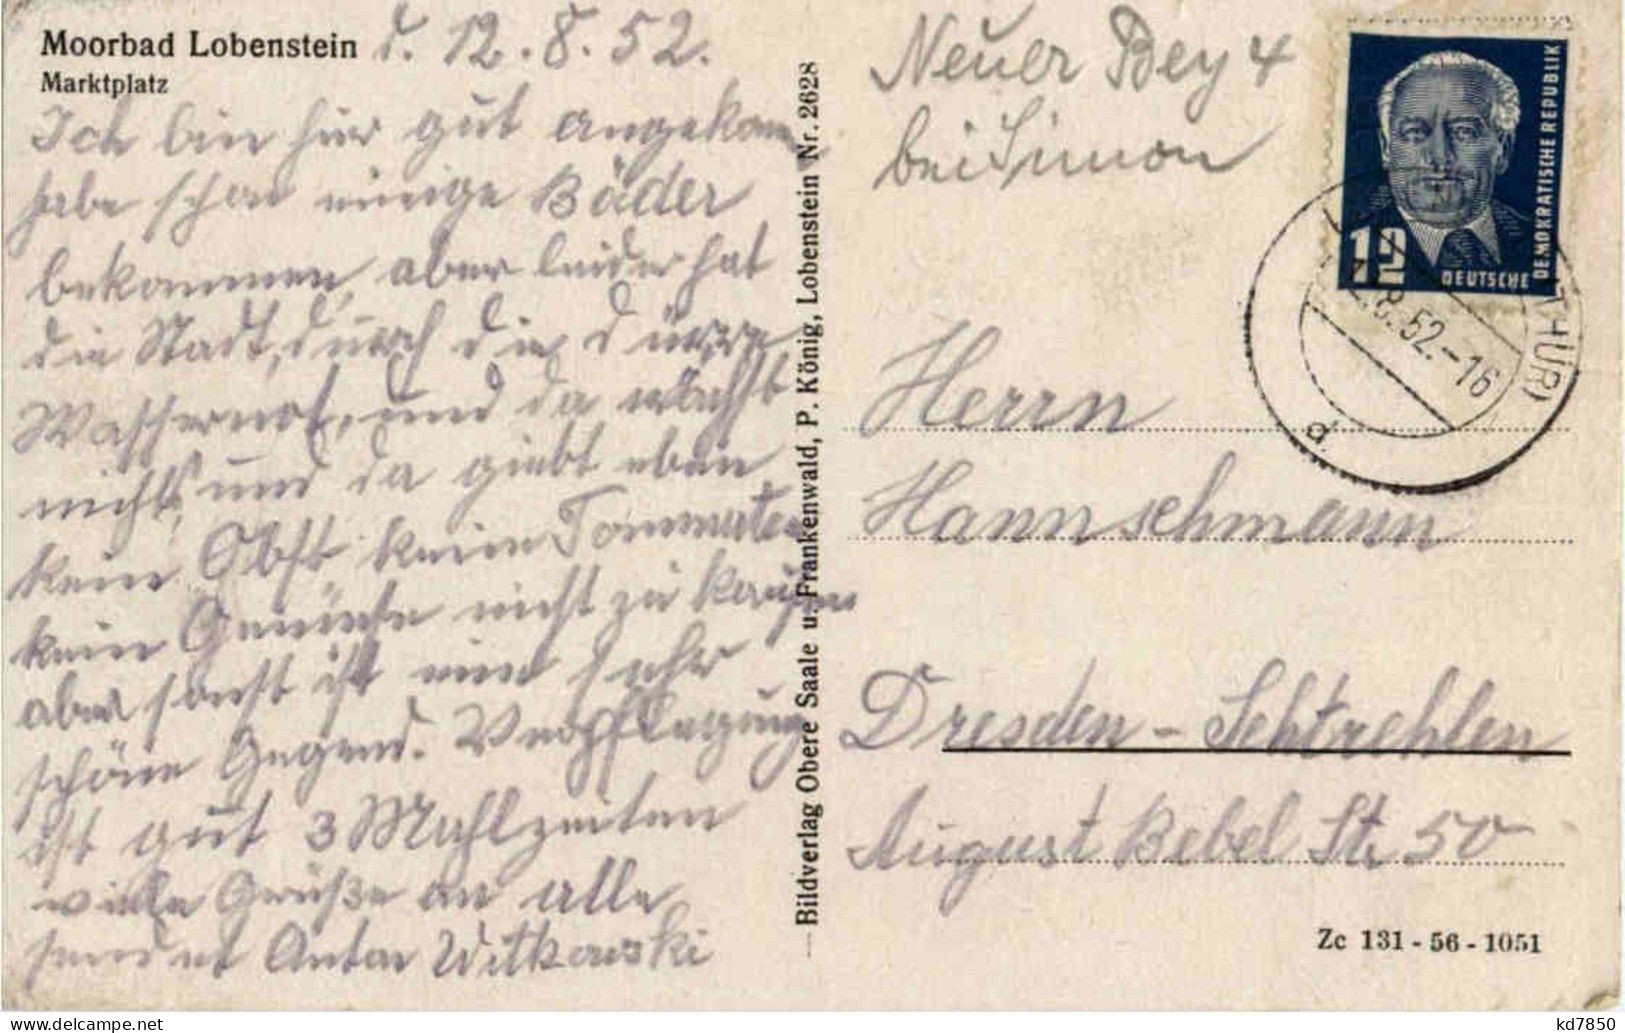 Moorbad Lobenstein d. 12.8.52.
Marktplatz
Ich bin hier gut angekom
habe schon einige Bäder
bekommen, aber leider hat
die Stadt, durch die dürre
Wassernot, und da wächst
nichts, und da giebt eben
kein Obst keine Tommaten
kein Gemüse nicht zu kaufen
aber sonst ist eine sehr
schöne Gegend. Verpflegung
ist gut 3 Mahlzeiten
viele Grüße an alle
sendet Anton Witkowski
Bildverlag Obere Saale u. Frankenwald, P. König, Lobenstein Nr. 2628
Neuer Bey 4
bei Simon
DEUTSCHE DEMOKRATISCHE REPUBLIK
12
8.52.-16
(THÜR)
d
Herrn
Hannschmann
Dresden - Schtrehlen
August Bebel Str 50
Zc 131 - 56 - 1051
kd7850